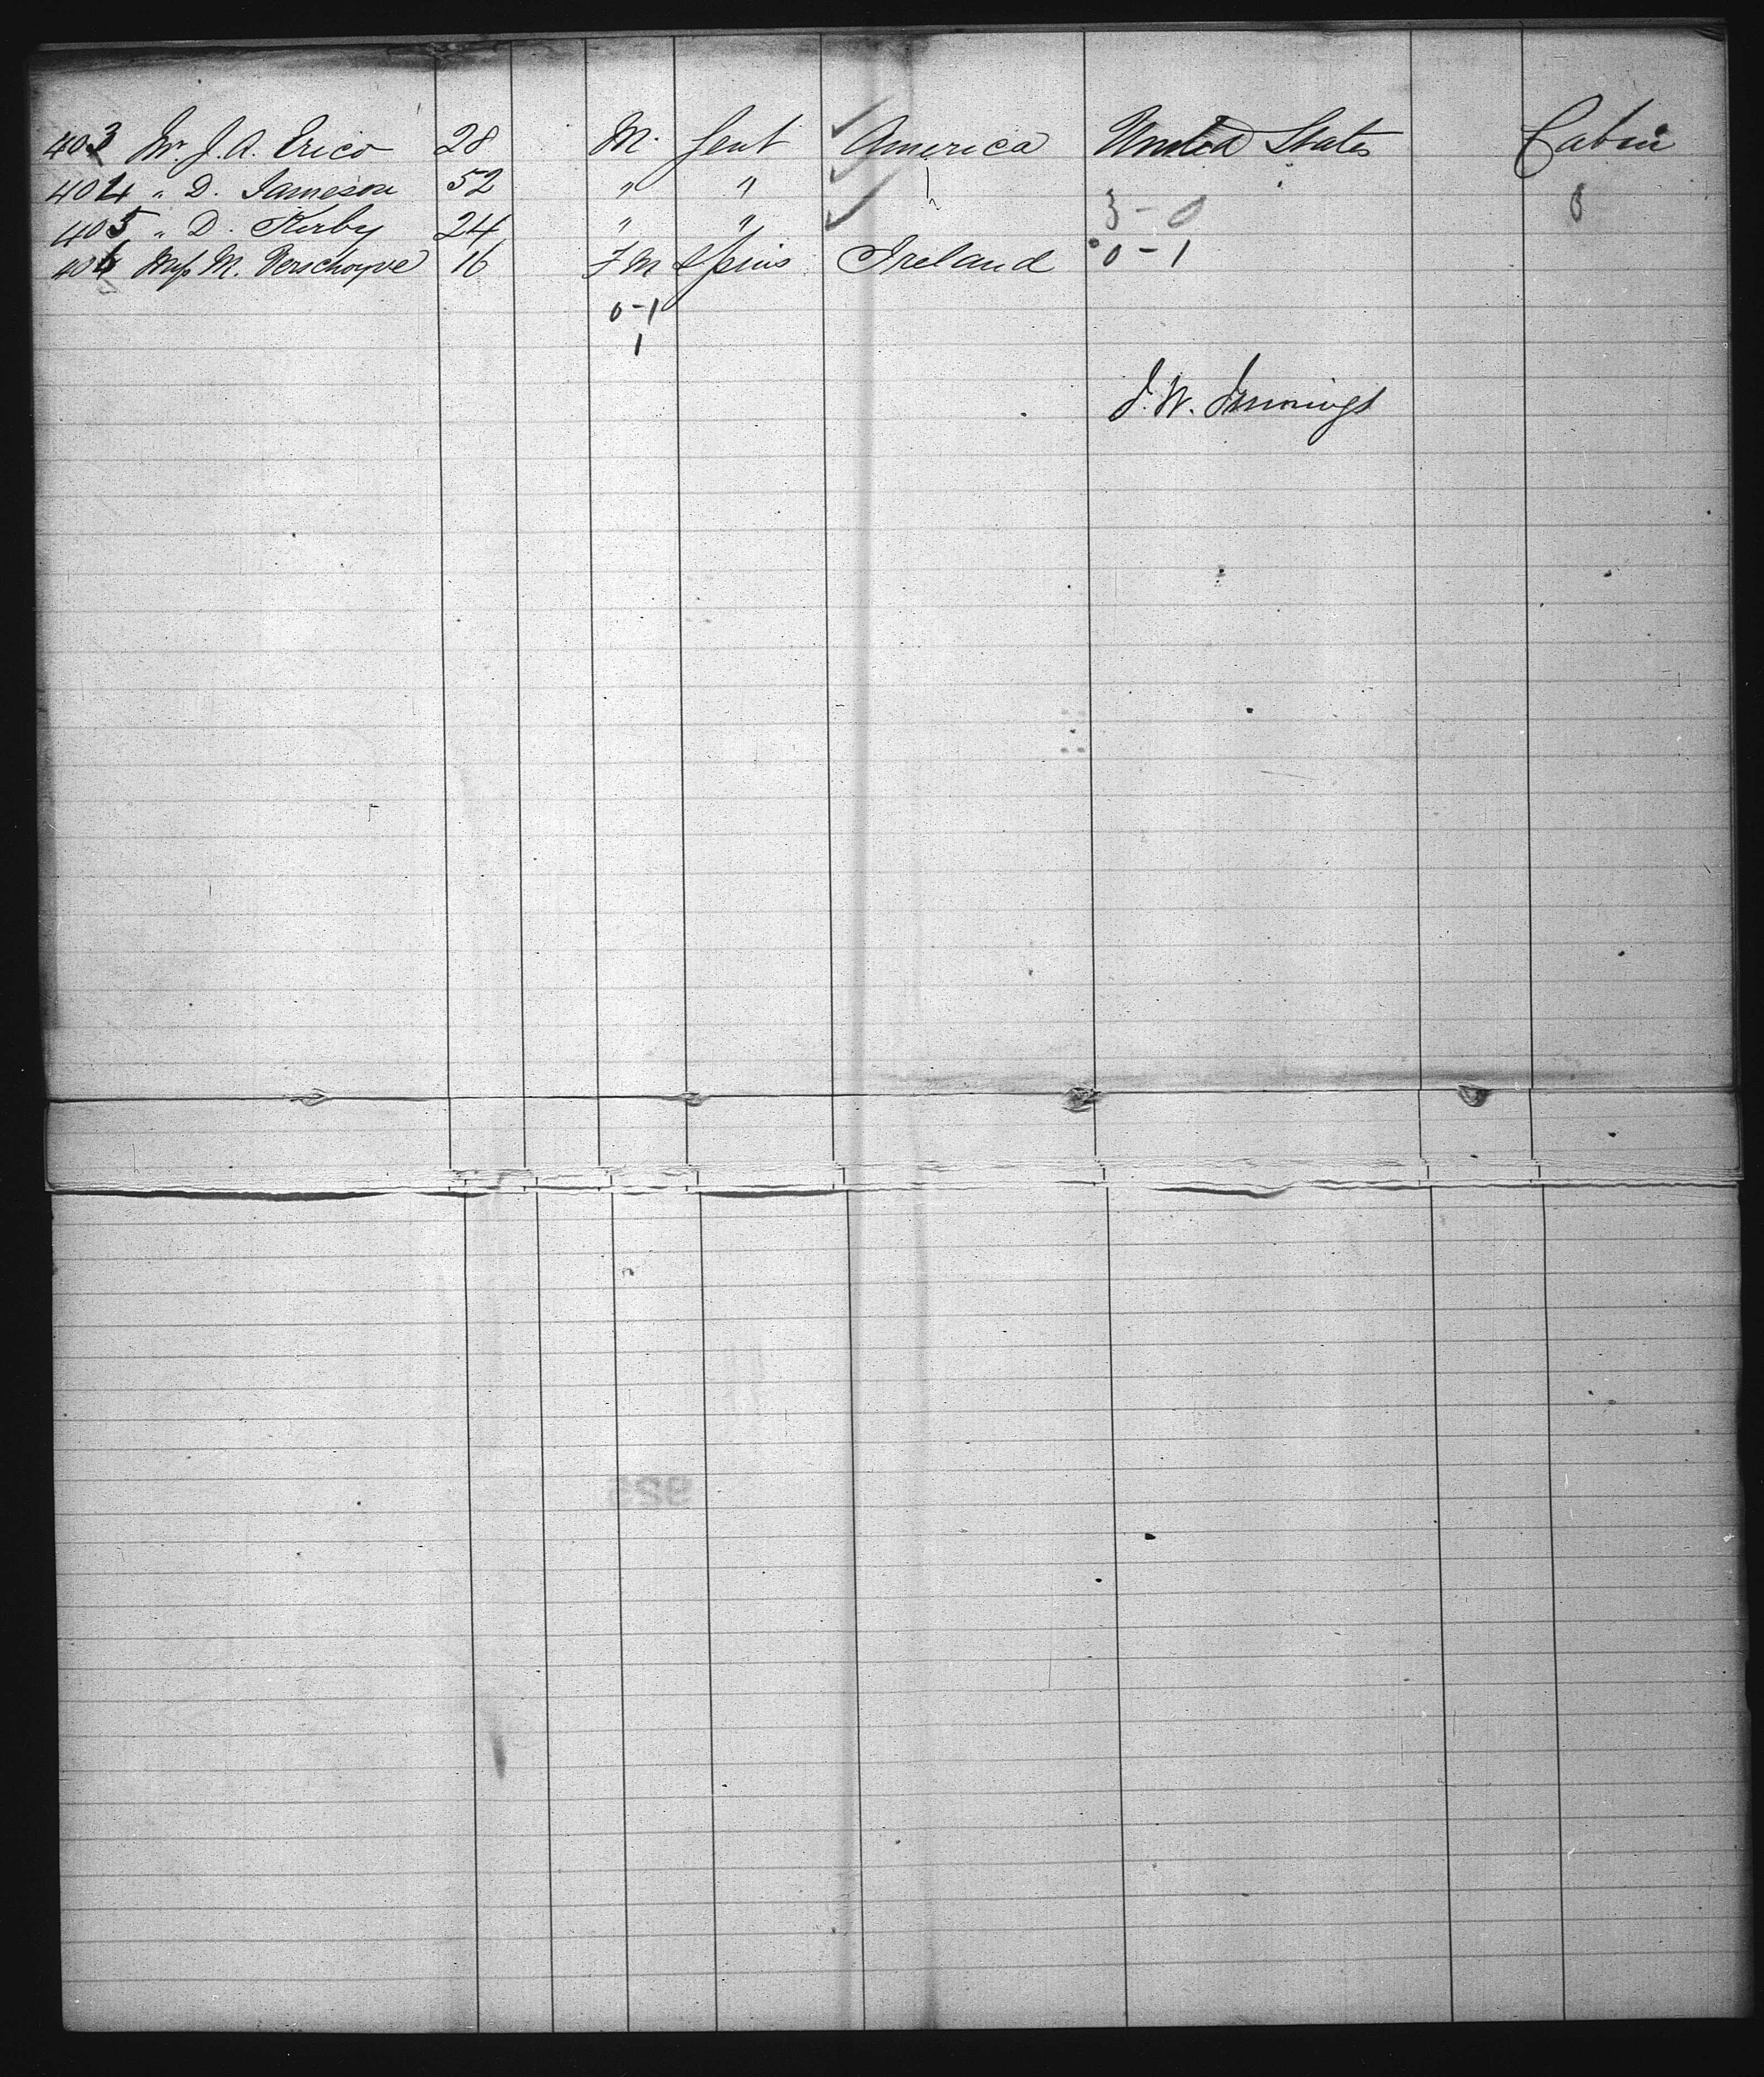 403 Mr. J. A. Erico 28 M. Gent America United States Cabin
404 " D. Jameson 52 " "
405 " D. Kirby 24 " " 3-0
406 Miss M. Verschoyve 16 F M Spins Ireland 0-1
0-1
1
J. W. Jennings
925